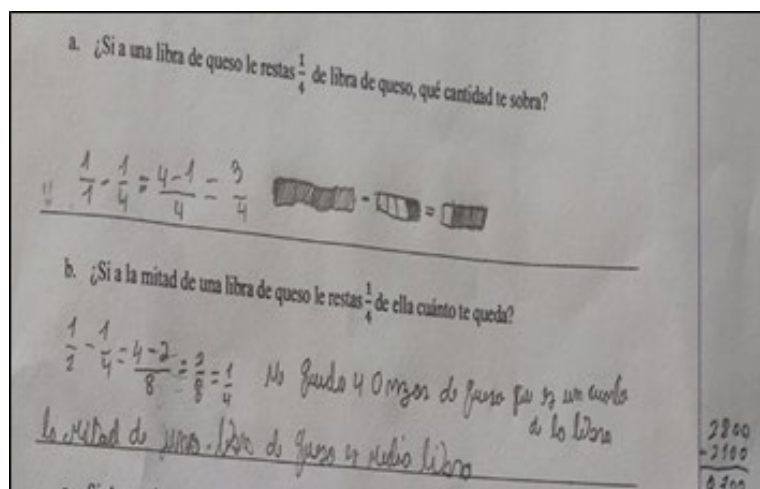 a. ¿Si a una libra de queso le restas 1/4 de libra de queso, qué cantidad te sobra?
1/1 - 1/4 = 4-1/4 = 3/4 - =
b. ¿Si a la mitad de una libra de queso le restas 1/4 de ella cuánto te queda?
1/2 - 1/4 = 4-2/8 = 2/8 = 1/4
No queda 4 Onzas de queso que es un cuarto
de la libra
la mitad de una libra de queso es media libra
2800
-2100
0700